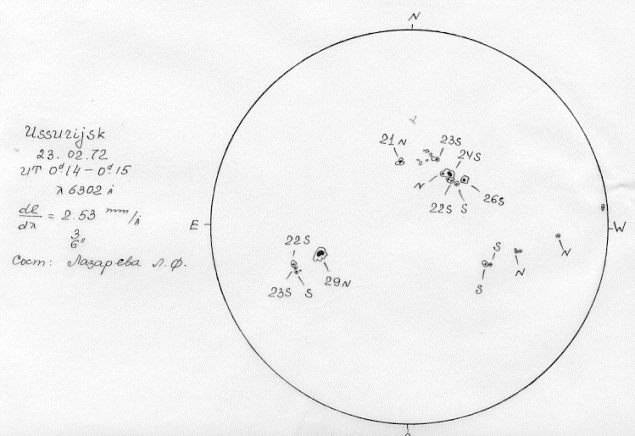 Ussurijsk
23.02.72
UT 0ᵈ.14 – 0ᵈ.15
λ 6302 Å
dl/dλ = 2.53 mm/Å
3/6"
Сост: Лазарева Л.Ф.
N
21N
23S
24S
N
22S
S
26S
E
W
22S
S
N
N
23S
S
29N
S